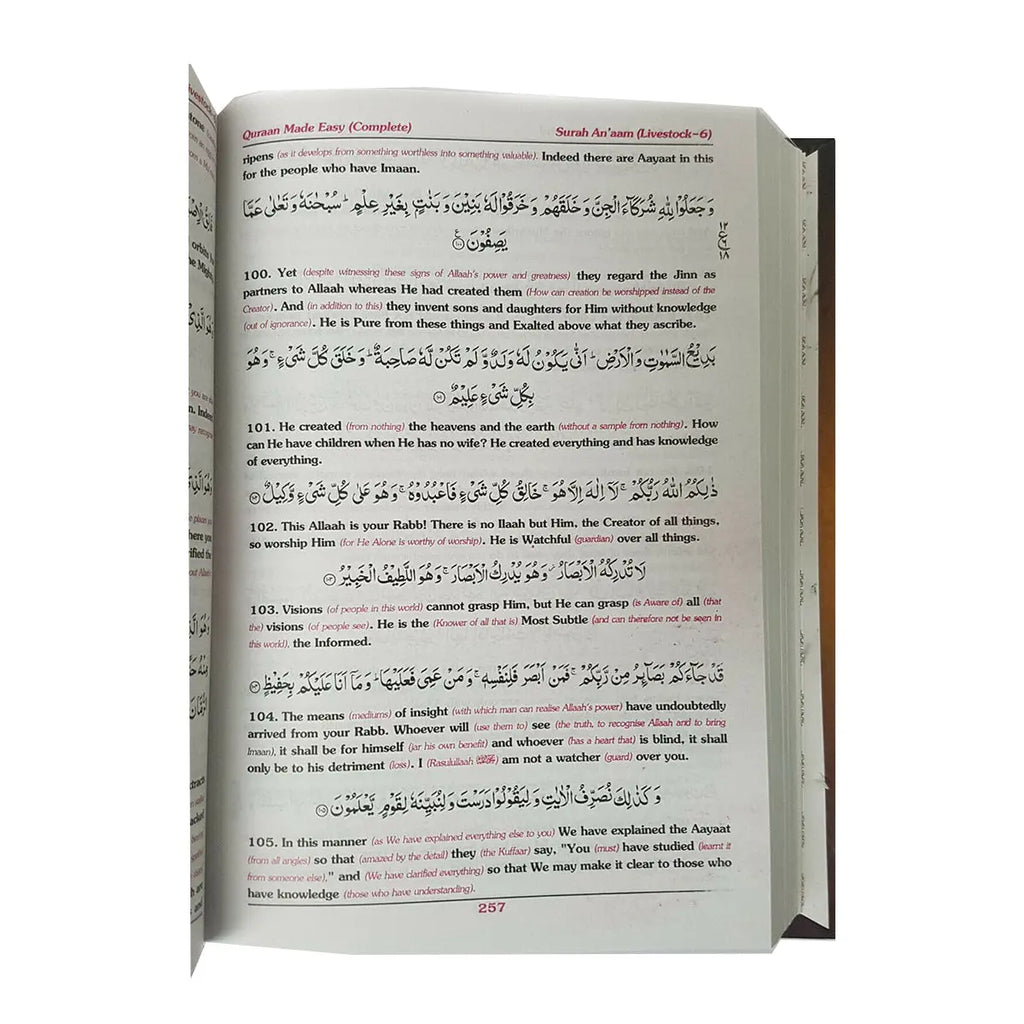 Quraan Made Easy (Complete) Surah An'aam (Livestock-6)
ripens (as it develops from something worthless into something valuable). Indeed there are Aayaat in this
for the people who have Imaan.
وَجَعَلُوْا لِلّٰهِ شُرَكَآءَ الْجِنَّ وَخَلَقَهُمْ وَخَرَقُوْا لَهٗ بَنِيْنَ وَبَنٰتٍۭ بِغَيْرِ عِلْمٍ ؕ سُبْحٰنَهٗ وَتَعٰلٰى عَمَّا
يَصِفُوْنَ ﴿۱۰۰﴾
100. Yet (despite witnessing these signs of Allaah's power and greatness) they regard the Jinn as
partners to Allaah whereas He had created them (How can creation be worshipped instead of the
Creator). And (in addition to this) they invent sons and daughters for Him without knowledge
(out of ignorance). He is Pure from these things and Exalted above what they ascribe.
بَدِيْعُ السَّمٰوٰتِ وَالْاَرْضِ ؕ اَنّٰى يَكُوْنُ لَهٗ وَلَدٌ وَّلَمْ تَكُنْ لَّهٗ صَاحِبَةٌ ؕ وَخَلَقَ كُلَّ شَيْءٍ ۚ وَهُوَ
بِكُلِّ شَيْءٍ عَلِيْمٌ ﴿۱۰۱﴾
101. He created (from nothing) the heavens and the earth (without a sample from nothing). How
can He have children when He has no wife? He created everything and has knowledge
of everything.
ذٰلِكُمُ اللّٰهُ رَبُّكُمْ ۚ لَآ اِلٰهَ اِلَّا هُوَ ۚ خَالِقُ كُلِّ شَيْءٍ فَاعْبُدُوْهُ ۚ وَهُوَ عَلٰى كُلِّ شَيْءٍ وَّكِيْلٌ ﴿۱۰۲﴾
102. This Allaah is your Rabb! There is no Ilaah but Him, the Creator of all things,
so worship Him (for He Alone is worthy of worship). He is Watchful (guardian) over all things.
لَا تُدْرِكُهُ الْاَبْصَارُ ؗ وَهُوَ يُدْرِكُ الْاَبْصَارَ ۚ وَهُوَ اللَّطِيْفُ الْخَبِيْرُ ﴿۱۰۳﴾
103. Visions (of people in this world) cannot grasp Him, but He can grasp (is Aware of) all (that
the) visions (of people see). He is the (Knower of all that is) Most Subtle (and can therefore not be seen in
this world), the Informed.
قَدْ جَآءَكُمْ بَصَآئِرُ مِنْ رَّبِّكُمْ ۚ فَمَنْ اَبْصَرَ فَلِنَفْسِهٖ ۚ وَمَنْ عَمِيَ فَعَلَيْهَا ؕ وَمَآ اَنَا عَلَيْكُمْ بِحَفِيْظٍ ﴿۱۰۴﴾
104. The means (mediums) of insight (with which man can realise Allaah's power) have undoubtedly
arrived from your Rabb. Whoever will (use them to) see (the truth, to recognise Allaah and to bring
Imaan), it shall be for himself (jar his own benefit) and whoever (has a heart that) is blind, it shall
only be to his detriment (loss). I (Rasulullaah ﷺ) am not a watcher (guard) over you.
وَكَذٰلِكَ نُصَرِّفُ الْاٰيٰتِ وَلِيَقُوْلُوْا دَرَسْتَ وَلِنُبَيِّنَهٗ لِقَوْمٍ يَّعْلَمُوْنَ ﴿۱۰۵﴾
105. In this manner (as We have explained everything else to you) We have explained the Aayaat
(from all angles) so that (amazed by the detail) they (the Kuffaar) say, "You (must) have studied (learnt it
from someone else)," and (We have clarified everything) so that We may make it clear to those who
have knowledge (those who have understanding).
257